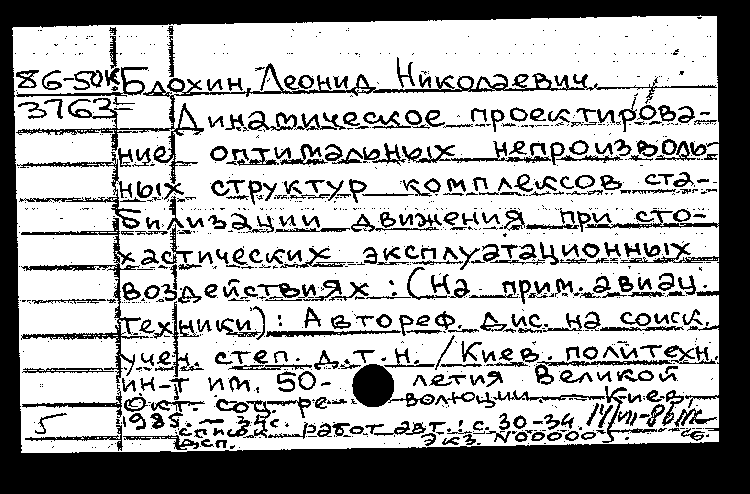 86-50к Блохин, Леонид Николаевич.
3763= Динамическое проектирова-
ние оптимальных непроизволь-
ных структур комплексов ста-
билизации движения при сто-
хастических эксплуатационных
воздействиях : (На прим. авиац.
техники) : Автореф. дис. на соиск.
учен. степ. д.т.н. / Киев. политехн.
ин-т им. 50-летия Великой
Окт. соц. революции. — Киев,
5 1985. — 34с.
список работ авт.: с. 30-34.
дсп. Экз. N000005.